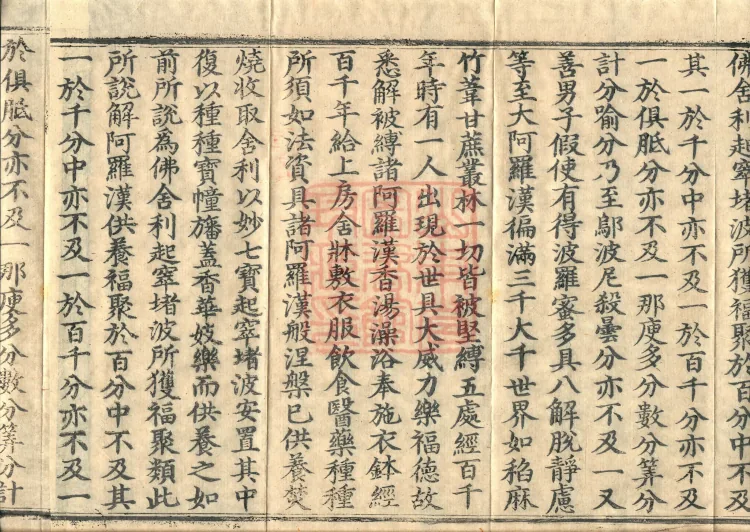 佛舍利起窣堵波所獲福聚於百分中不及
其一於千分中亦不及一於百千分亦不及
一於俱胝分亦不及一那庾多分數分筭分
計分喻分乃至鄔波尼殺曇分亦不及一又
善男子假使有得波羅蜜多具八解脫靜慮
等至大阿羅漢徧滿三千大千世界如稻麻
竹葦甘蔗叢林一切皆被堅縛五處經百千
年時有一人出現於世具大威力樂福德故
悉解被縛諸阿羅漢香湯澡浴奉施衣鉢經
百千年給上房舍牀敷衣服飲食醫藥種種
所須如法資具諸阿羅漢般涅槃已供養焚
燒收取舍利以妙七寶起窣堵波安置其中
復以種種寶幢旛蓋香華妓樂而供養之如
前所說為佛舍利起窣堵波所獲福聚類此
所說解阿羅漢供養福聚於百分中不及其
一於千分中亦不及一於百千分亦不及一
於俱胝分亦不及一那庾多分數分筭分計